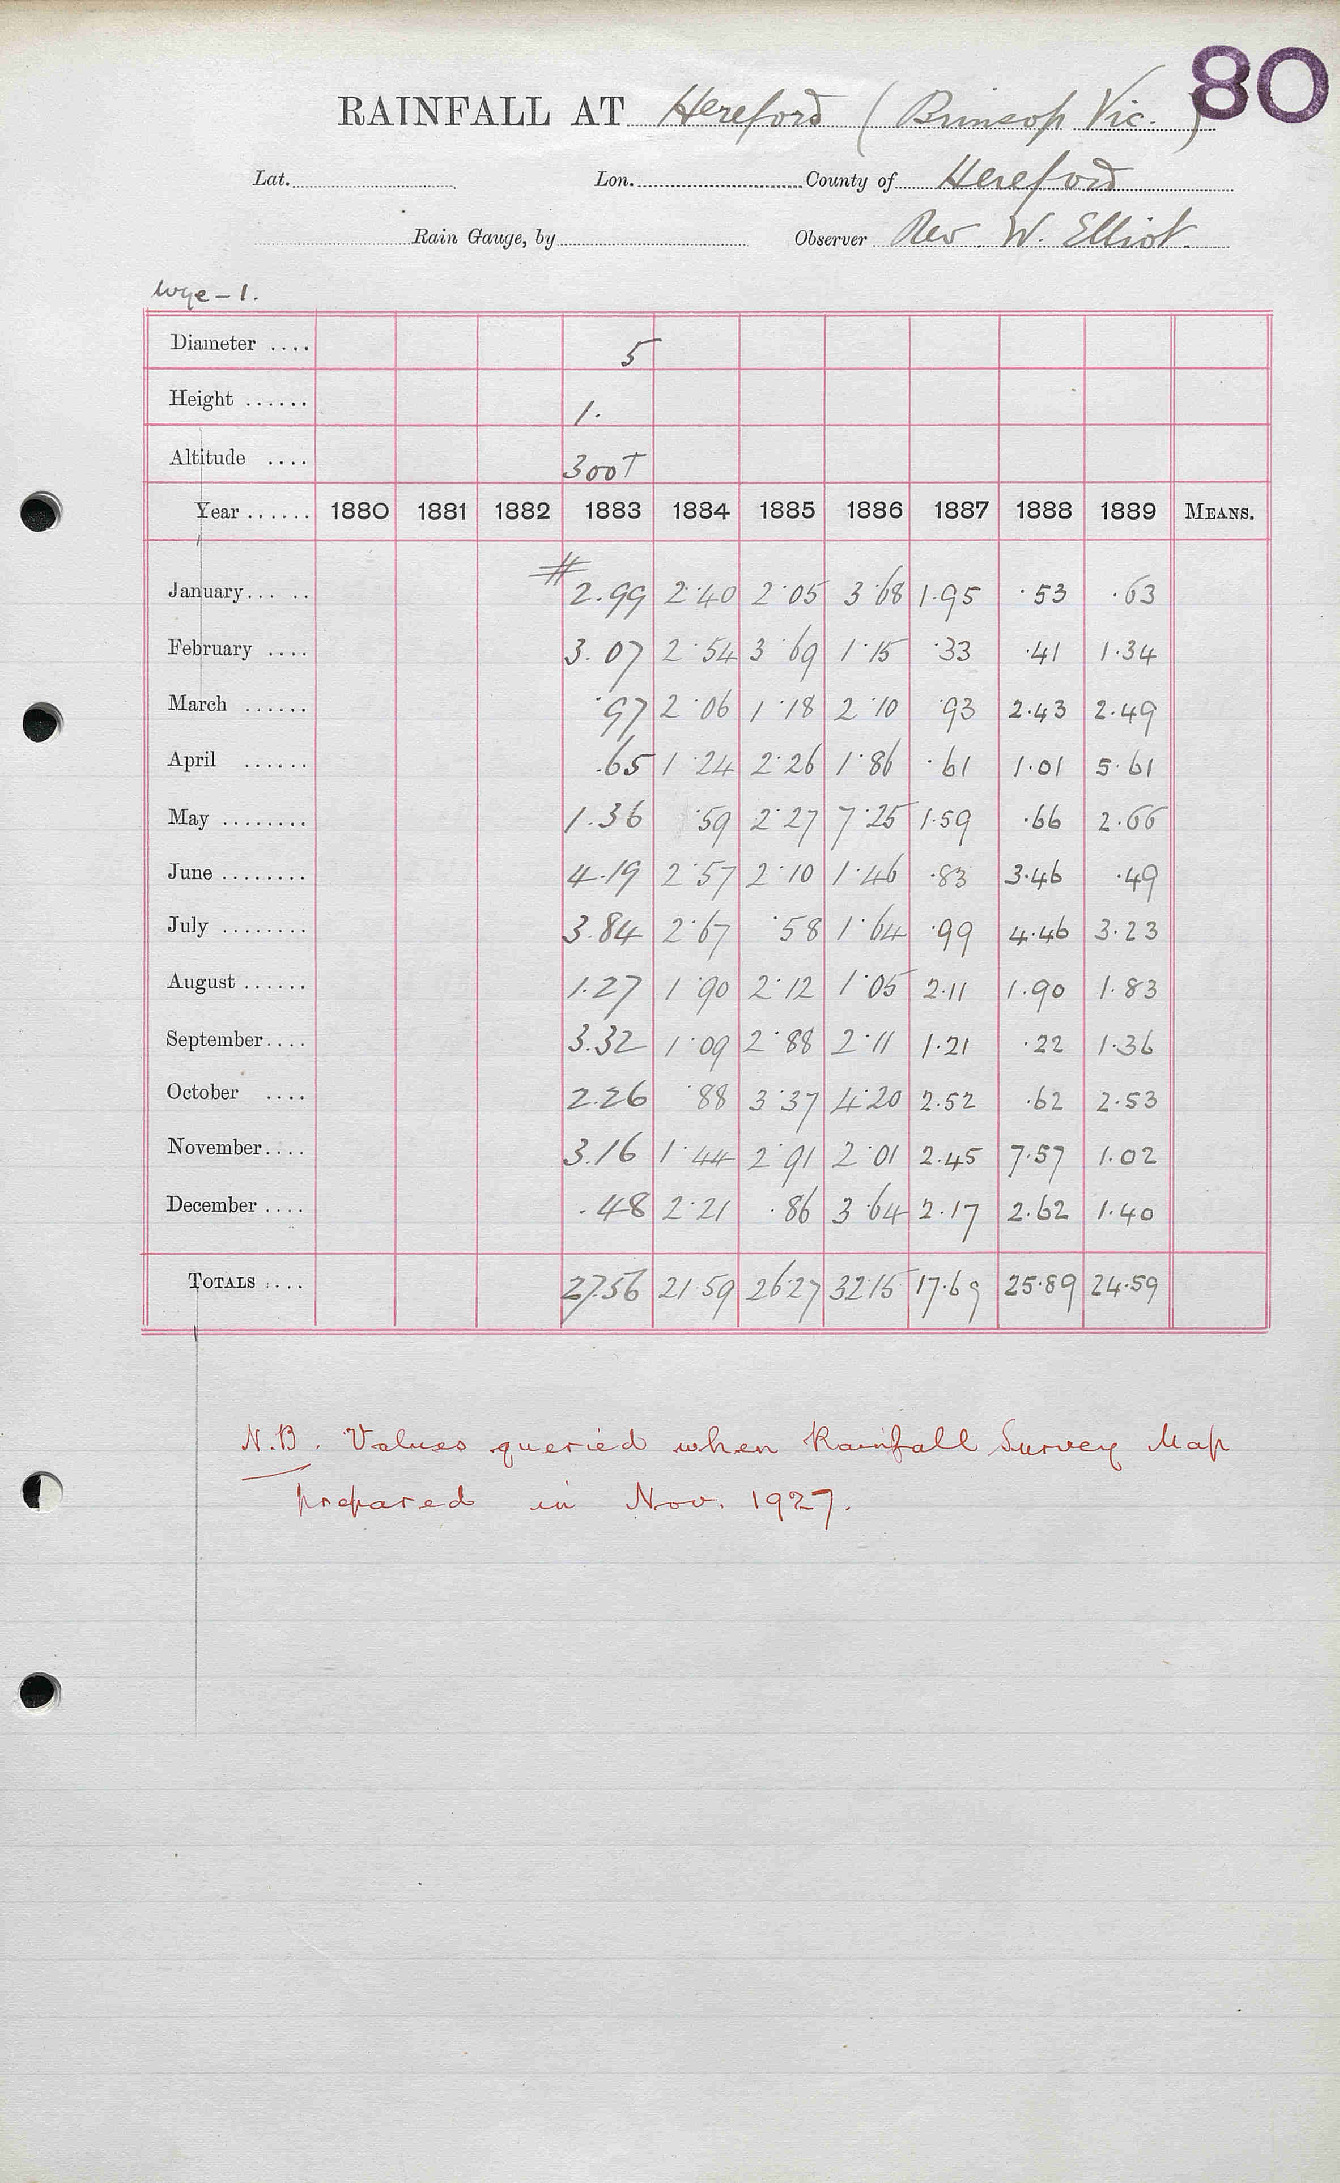 80
RAINFALL AT Hereford (Brinsop Vic.)
Lat. Lon. County of Hereford
Rain Gauge, by Observer Rev. W. Elliot.
Wye – 1.
Diameter .... 5
Height ...... 1.
Altitude .... 300T
Year ...... 1880 1881 1882 1883 1884 1885 1886 1887 1888 1889 MEANS.
January... .. # 2.99 2.40 2.05 3.68 1.95 .53 .63
February .... 3.07 2.54 3.69 1.15 .33 .41 1.34
March ...... .97 2.06 1.18 2.10 .93 2.43 2.49
April ...... .65 1.24 2.26 1.86 .61 1.01 5.61
May ........ 1.36 .59 2.27 7.25 1.59 .66 2.66
June ........ 4.19 2.57 2.10 1.46 .83 3.46 .49
July ........ 3.84 2.67 .58 1.64 .99 4.46 3.23
August ...... 1.27 1.90 2.12 1.05 2.11 1.90 1.83
September.... 3.32 1.09 2.88 2.11 1.21 .22 1.36
October .... 2.26 .88 3.37 4.20 2.52 .62 2.53
November.... 3.16 1.44 2.91 2.01 2.45 7.57 1.02
December .... .48 2.21 .86 3.64 2.17 2.62 1.40
TOTALS .... 27.56 21.59 26.27 32.15 17.69 25.89 24.59
N.B. Values queried when Rainfall Survey Map
prepared in Nov. 1927.